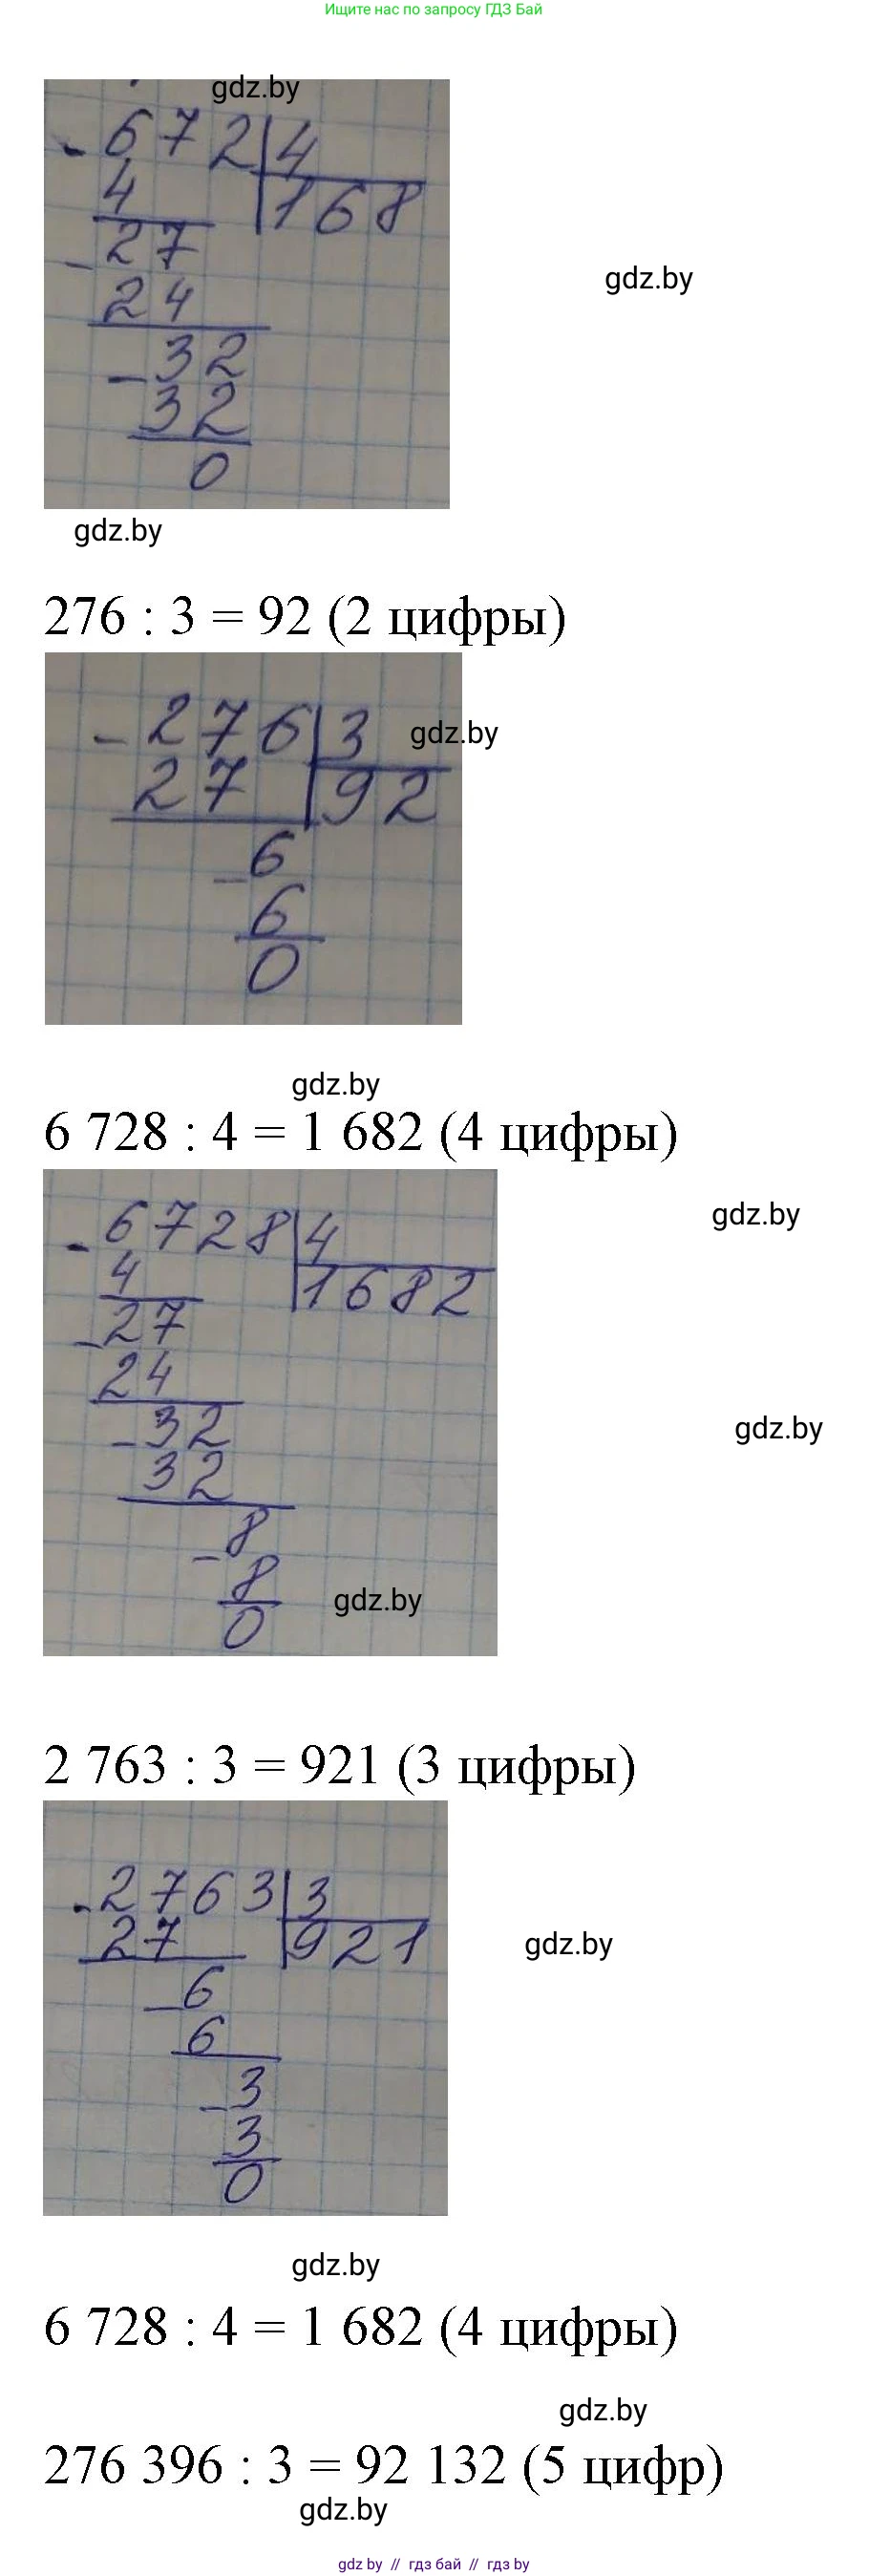 Ищите нас по запросу ГДЗ Бай
gdz.by
- 672 | 4
4 168
- 27
24
- 32
32
0
gdz.by
gdz.by
276 : 3 = 92 (2 цифры)
- 276 | 3
gdz.by
27 92
- 6
6
0
gdz.by
6 728 : 4 = 1 682 (4 цифры)
gdz.by
- 6728 | 4
4 1682
- 27
24
gdz.by
- 32
32
- 8
8
gdz.by
0
2 763 : 3 = 921 (3 цифры)
- 2763 | 3
27 921
gdz.by
- 6
6
- 3
3
0
gdz.by
6 728 : 4 = 1 682 (4 цифры)
gdz.by
276 396 : 3 = 92 132 (5 цифр)
gdz.by
gdz by // гдз бай // гдз by